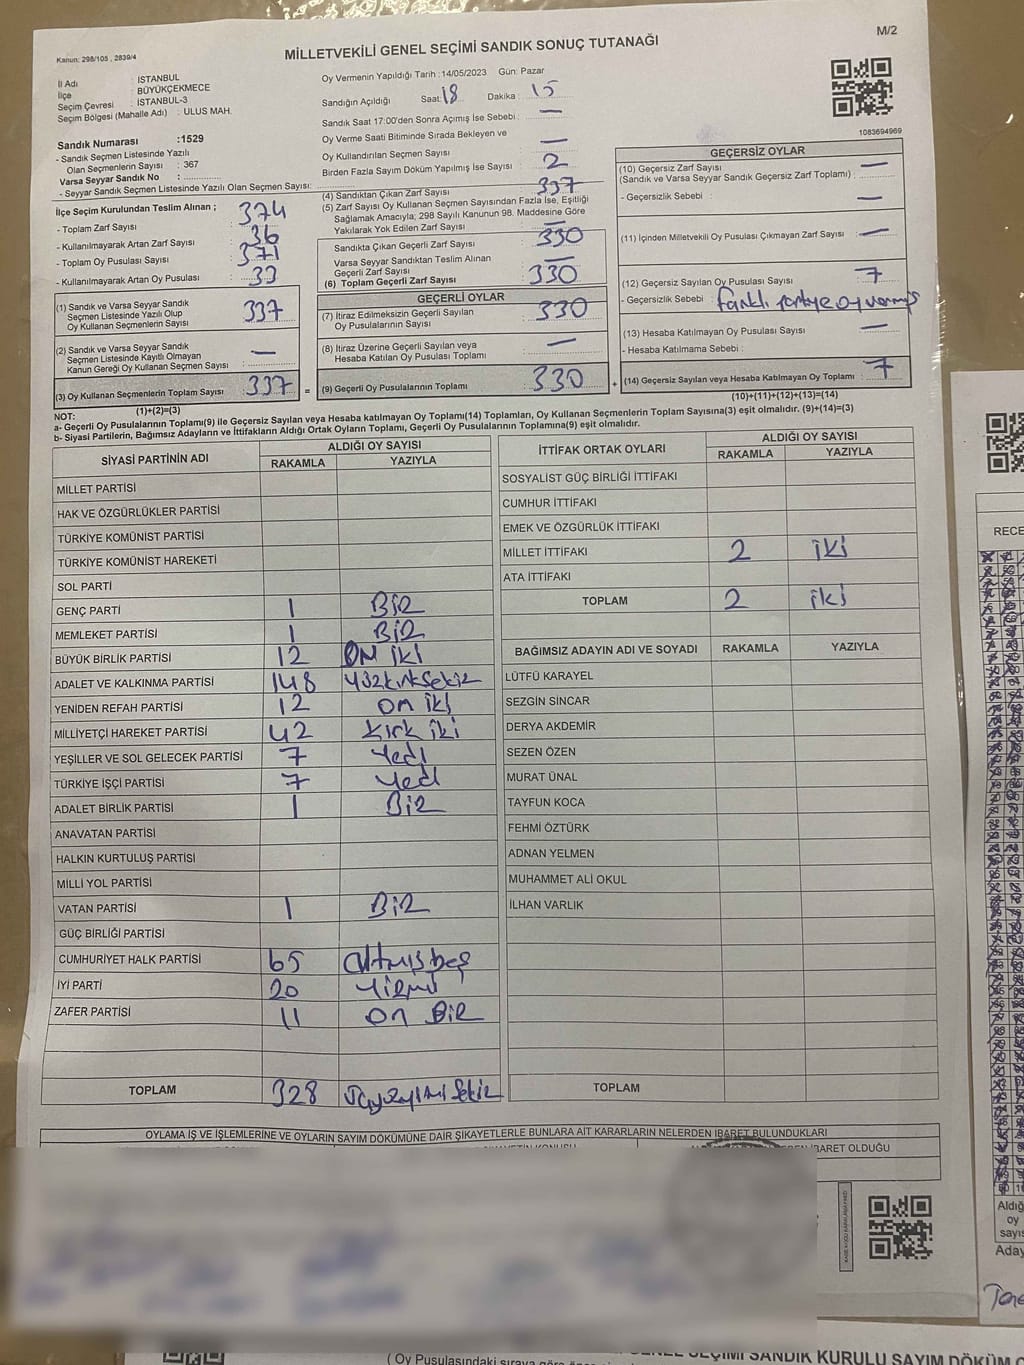 M/2
MİLLETVEKİLİ GENEL SEÇİMİ SANDIK SONUÇ TUTANAĞI
Kanun: 298/105 , 2839/4
İl Adı : İSTANBUL
İlçe : BÜYÜKÇEKMECE
Seçim Çevresi : İSTANBUL-3
Seçim Bölgesi (Mahalle Adı) : ULUS MAH.
Sandık Numarası :1529
- Sandık Seçmen Listesinde Yazılı
Olan Seçmenlerin Sayısı : 367
Varsa Seyyar Sandık No :
- Seyyar Sandık Seçmen Listesinde Yazılı Olan Seçmen Sayısı:
Oy Vermenin Yapıldığı Tarih :14/05/2023 Gün: Pazar
Sandığın Açıldığı Saat: 18 Dakika : 15
Sandık Saat 17:00'den Sonra Açımış İse Sebebi : —
Oy Verme Saati Bitiminde Sırada Bekleyen ve
Oy Kullandırılan Seçmen Sayısı —
Birden Fazla Sayım Döküm Yapılmış İse Sayısı : 2
1083694969
İlçe Seçim Kurulundan Teslim Alınan ;
- Toplam Zarf Sayısı : 374
- Kullanılmayarak Artan Zarf Sayısı : 36
- Toplam Oy Pusulası Sayısı : 371
- Kullanılmayarak Artan Oy Pusulası : 33
(1) Sandık ve Varsa Seyyar Sandık
Seçmen Listesinde Yazılı Olup
Oy Kullanan Seçmenlerin Sayısı 337
(2) Sandık ve Varsa Seyyar Sandık
Seçmen Listesinde Kayıtlı Olmayan
Kanun Gereği Oy Kullanan Seçmen Sayısı —
(3) Oy Kullanan Seçmenlerin Toplam Sayısı 337 =
(1)+(2)=(3)
(4) Sandıktan Çıkan Zarf Sayısı : 337
(5) Zarf Sayısı Oy Kullanan Seçmen Sayısından Fazla İse, Eşitliği
Sağlamak Amacıyla; 298 Sayılı Kanunun 98. Maddesine Göre
Yakılarak Yok Edilen Zarf Sayısı : —
Sandıkta Çıkan Geçerli Zarf Sayısı 330
Varsa Seyyar Sandıktan Teslim Alınan
Geçerli Zarf Sayısı —
(6) Toplam Geçerli Zarf Sayısı 330
GEÇERLİ OYLAR
(7) İtiraz Edilmeksizin Geçerli Sayılan
Oy Pusulalarının Sayısı 330
(8) İtiraz Üzerine Geçerli Sayılan veya
Hesaba Katılan Oy Pusulası Toplamı —
(9) Geçerli Oy Pusulalarının Toplamı : 330 +
GEÇERSİZ OYLAR
(10) Geçersiz Zarf Sayısı
(Sandık ve Varsa Seyyar Sandık Geçersiz Zarf Toplamı) : —
- Geçersizlik Sebebi : —
(11) İçinden Milletvekili Oy Pusulası Çıkmayan Zarf Sayısı : —
(12) Geçersiz Sayılan Oy Pusulası Sayısı : 7
- Geçersizlik Sebebi : farklı partiye oy vermiş
(13) Hesaba Katılmayan Oy Pusulası Sayısı : —
- Hesaba Katılmama Sebebi :
(14) Geçersiz Sayılan veya Hesaba Katılmayan Oy Toplamı : 7
(10)+(11)+(12)+(13)=(14)
NOT:
a- Geçerli Oy Pusulalarının Toplamı(9) ile Geçersiz Sayılan veya Hesaba katılmayan Oy Toplamı(14) Toplamları, Oy Kullanan Seçmenlerin Toplam Sayısına(3) eşit olmalıdır. (9)+(14)=(3)
b- Siyasi Partilerin, Bağımsız Adayların ve İttifakların Aldığı Ortak Oyların Toplamı, Geçerli Oy Pusulalarının Toplamına(9) eşit olmalıdır.
SİYASİ PARTİNİN ADI ALDIĞI OY SAYISI
RAKAMLA YAZIYLA
MİLLET PARTİSİ
HAK VE ÖZGÜRLÜKLER PARTİSİ
TÜRKİYE KOMÜNİST PARTİSİ
TÜRKİYE KOMÜNİST HAREKETİ
SOL PARTİ
GENÇ PARTİ 1 BİR
MEMLEKET PARTİSİ 1 BİR
BÜYÜK BİRLİK PARTİSİ 12 ON iki
ADALET VE KALKINMA PARTİSİ 148 yüzkırksekiz
YENİDEN REFAH PARTİSİ 12 on iki
MİLLİYETÇİ HAREKET PARTİSİ 42 kırk iki
YEŞİLLER VE SOL GELECEK PARTİSİ 7 Yedi
TÜRKİYE İŞÇİ PARTİSİ 7 Yedi
ADALET BİRLİK PARTİSİ 1 BİR
ANAVATAN PARTİSİ
HALKIN KURTULUŞ PARTİSİ
MİLLİ YOL PARTİSİ
VATAN PARTİSİ 1 BİR
GÜÇ BİRLİĞİ PARTİSİ
CUMHURİYET HALK PARTİSİ 65 Altmışbeş
İYİ PARTİ 20 Yirmi
ZAFER PARTİSİ 11 on BİR
TOPLAM 328 üçyüzyirmisekiz
İTTİFAK ORTAK OYLARI ALDIĞI OY SAYISI
RAKAMLA YAZIYLA
SOSYALİST GÜÇ BİRLİĞİ İTTİFAKI
CUMHUR İTTİFAKI
EMEK VE ÖZGÜRLÜK İTTİFAKI
MİLLET İTTİFAKI 2 iki
ATA İTTİFAKI
TOPLAM 2 iki
BAĞIMSIZ ADAYIN ADI VE SOYADI RAKAMLA YAZIYLA
LÜTFÜ KARAYEL
SEZGİN SİNCAR
DERYA AKDEMİR
SEZEN ÖZEN
MURAT ÜNAL
TAYFUN KOCA
FEHMİ ÖZTÜRK
ADNAN YELMEN
MUHAMMET ALİ OKUL
İLHAN VARLIK
TOPLAM
OYLAMA İŞ VE İŞLEMLERİNE VE OYLARIN SAYIM DÖKÜMÜNE DAİR ŞİKAYETLERLE BUNLARA AİT KARARLARIN NELERDEN İBARET BULUNDUKLARI
İBARET OLDUĞU
RECE
Aldığ
oy
sayıs
Aday
( Oy Pusulasındaki sıraya göre
SEÇİMİ SANDIK KURULU SAYIM DÖKÜM